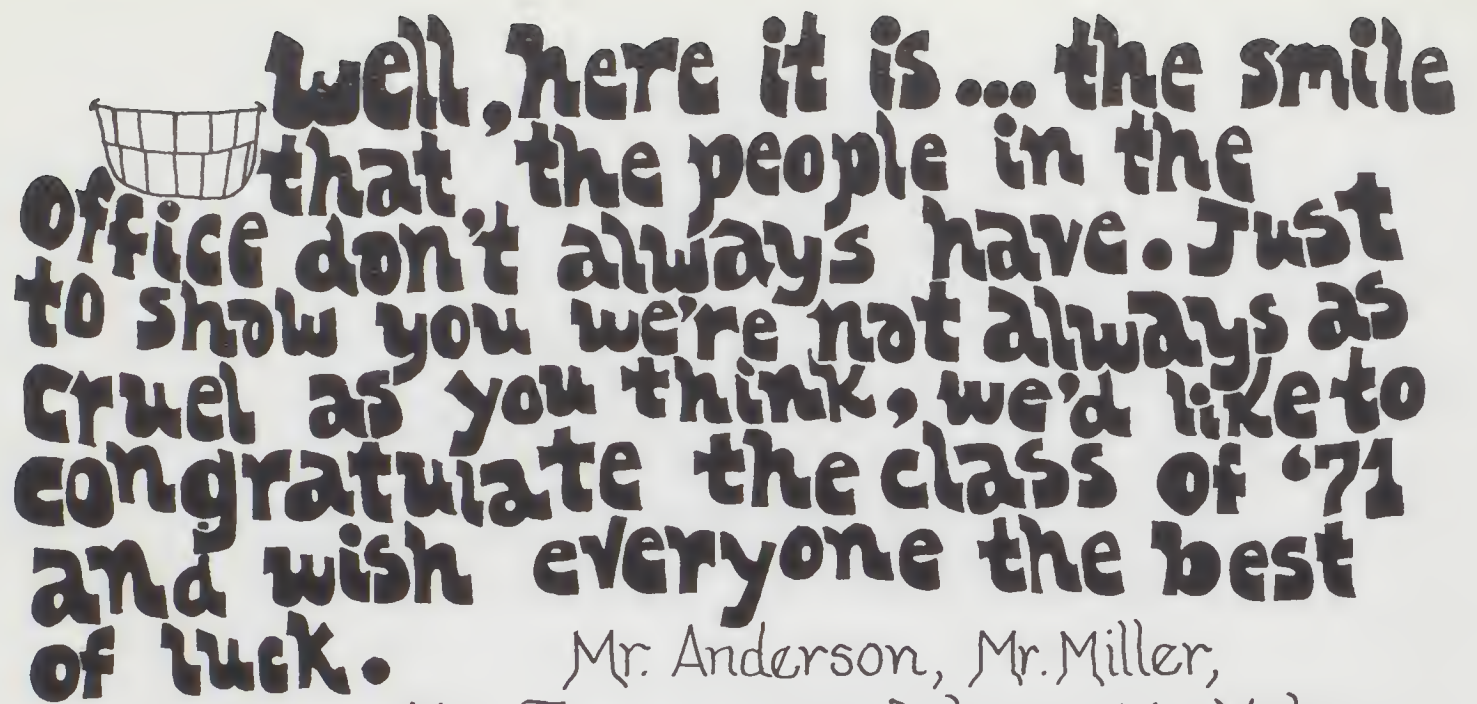 Well, here it is... the smile
that the people in the
office don't always have. Just
to show you we're not always as
cruel as you think, we'd like to
congratulate the class of '71
and wish everyone the best
of luck.
Mr. Anderson, Mr. Miller,